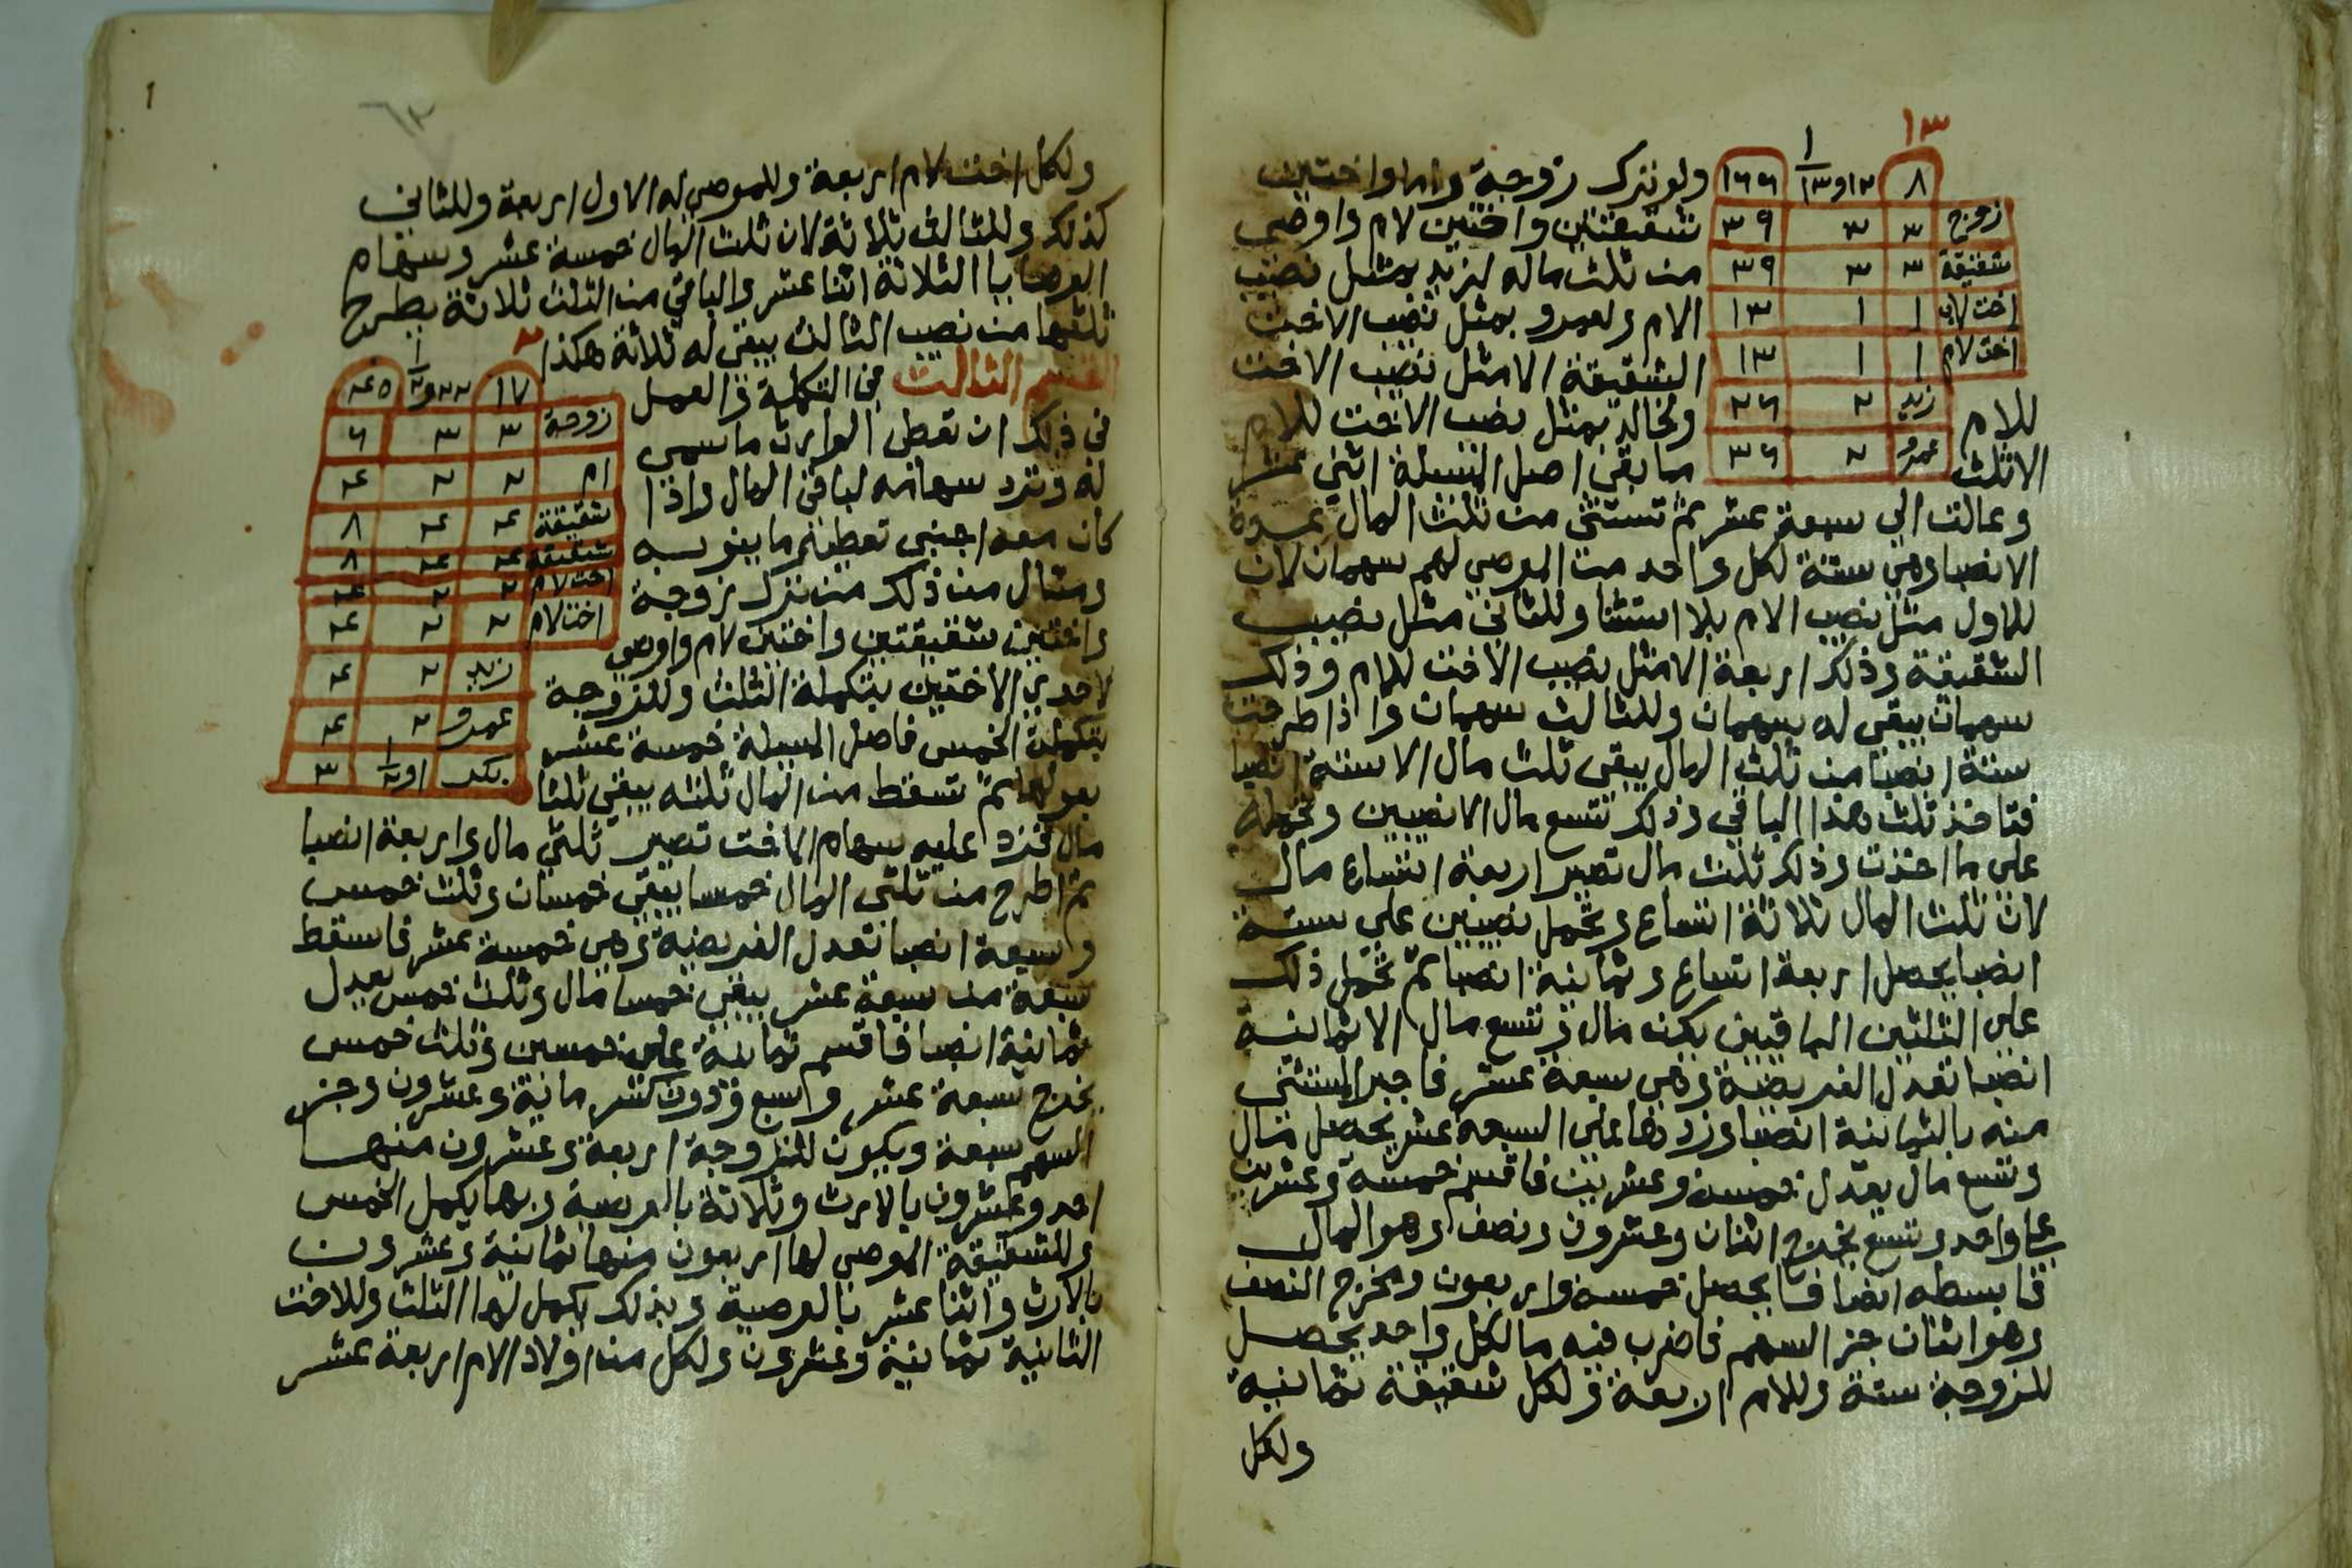 ١٣
٨ ١٢و١/١٣ ١٦٦
زوج ٣ ٣ ٣٩
شقيقة ٣ ٣ ٣٩
اخت لاب ١ ١ ١٣
اخت لام ١ ١ ١٣
زيد ٢ ٢٦
عمرو ٢ ٣٦
ولو ترك زوجة واما واختين
شقيقتين واختين لام واوصى
من ثلث ماله لزيد بمثل نصيب
الام ولعمرو بمثل نصيب الاخت
الشقيقة الا مثل نصيب الاخت
للام ولخالد بمثل نصيب الاخت للام
الا ثلث ما بقى اصل المسئلة اثنى عشر
وعالت الى سبعة عشر ثم تستثنى من ثلث المال عدة
الانصبا وهى ستة لكل واحد من الموصى لهم سهمان لان
للاول مثل نصيب الام بلا استثنا وللثانى مثل نصيب
الشقيقة وذلك اربعة الا مثل نصيب الاخت للام وذلك
سهمان يبقى له سهمان وللثالث سهمان واذا طرحت
ستة انصبا من ثلث المال يبقى ثلث مال الا ستة انصبا
فتاخذ ثلث هذا الباقى وذلك تسع مال الا نصيبين وتحمله
على ما اخذت وذلك ثلث مال تصير اربعة اتساع مال
لان ثلث المال ثلاثة اتساع وتحمل نصيبين على ستة
انصبا يحصل اربعة اتساع وثمانية انصبا ثم تحمل ذلك
على الثلثين الباقيين يكن مال وتسع مال الا ثمانية
انصبا تعدل الفريضة وهى سبعة عشر فاجبر المستثنى
منه بالثمانية انصبا وزدها على السبعة عشر يحصل مال
وتسع مال يعدل خمسة وعشرين فاقسم خمسة وعشرين
على واحد وتسع يخرج اثنان وعشرون ونصف وهو المال
فابسطه انصافا يحصل خمسة واربعون ومخرج النصف
وهو اثنان جز السهم فاضرب فيه ما لكل واحد يحصل
للزوجة ستة وللام اربعة ولكل شقيقة ثمانية
ولكل
ولكل اخت لام اربعة وللموصى له الاول اربعة وللثانى
كذلك وللثالث ثلاثة لان ثلث المال خمسة عشر وسهام
الوصايا الثلاثة اثنا عشر والباقى من الثلث ثلاثة يطرح
ثلثها من نصيب الثالث يبقى له ثلاثة هكذا
القسم الثالث فى التكملة والعمل
فى ذلك ان تعطى الوارث ما سمى
له وترد سهامه لباقى المال واذا
كان معه اجنبى تعطيه ما ينوبه
ومثال من ذلك من ترك زوجة
واختين شقيقتين واختين لام واوصى
لاحدى الاختين بتكملة الثلث وللزوجة
بتكملة الخمس فاصل المسئلة خمسة عشر
بعولها ثم تسقط من المال ثلثه يبقى ثلثا
مال فزد عليه سهام الاخت تصير ثلثى مال واربعة انصبا
ثم اطرح من ثلثى المال خمسا يبقى خمسان وثلث خمس
وسبعة انصبا تعدل الفريضة وهى خمسة عشر فاسقط
سبعة من سبعة عشر يبقى خمسا مال وثلث خمس يعدل
ثمانية انصبا فاقسم ثمانية على خمسين وثلث خمس
يخرج سبعة عشر
السهم سبعة ويكون للزوجة اربعة وعشرون منها
احد وعشرون بالارث وثلاثة بالوصية وبها يكمل الخمس
وللشقيقة الموصى لها اربعون منها ثمانية وعشرون
بالارث واثنا عشر بالوصية وبذلك يكمل لها الثلث وللاخت
الثانية ثمانية وعشرون ولكل من اولاد الام اربعة عشر
٢
١٧ ٢٢و١/٢ ٤٥
زوجة ٣ ٣ ٦
ام ٢ ٢ ٤
شقيقة ٤ ٤ ٨
شقيقة ٤ ٤ ٨
اخت لام ٢ ٢ ٤
اخت لام ٢ ٢ ٤
زيد ٢ ٤
عمرو ٢ ٤
بكر ١و١/٢ ٣